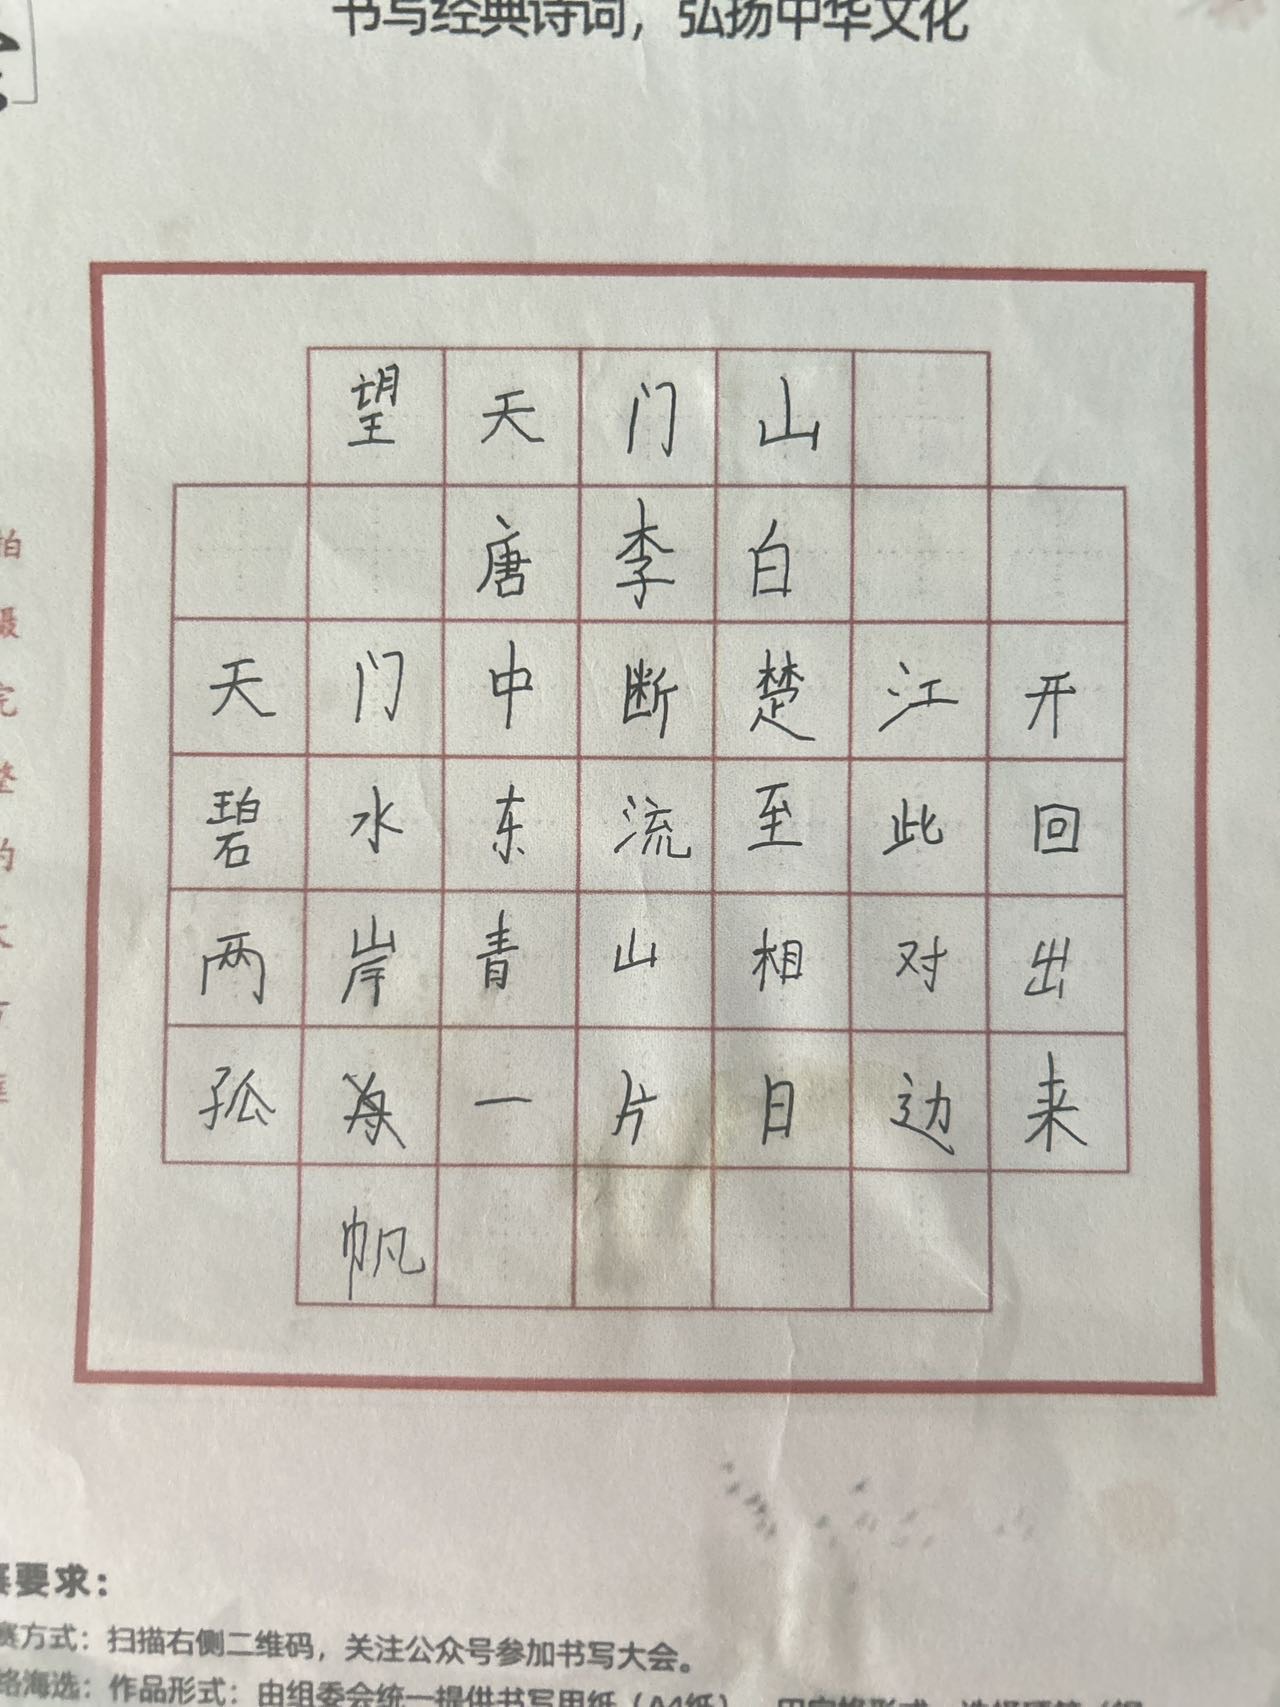 书写经典诗词，弘扬中华文化
望天门山
唐李白
天门中断楚江开
碧水东流至此回
两岸青山相对出
孤一片日边来
帆
拍
摄
完
整
的
大
方
框
赛要求：
赛方式：扫描右侧二维码，关注公众号参加书写大会。
络海选：作品形式：由组委会统一提供书写用纸（A4纸）